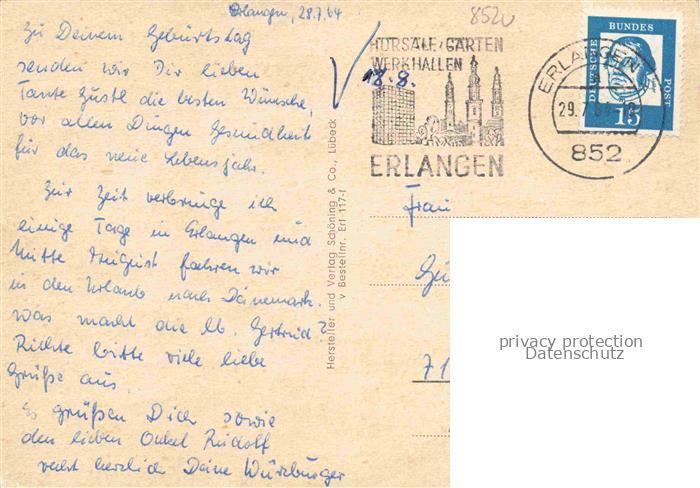 Erlangen, 28.7.64
Zu Deinem Geburtstag
senden wir Dir lieben
Tante Gustl die besten Wünsche,
vor allen Dingen Gesundheit
für das neue Lebensjahr.
Zur Zeit verbringe ich
einige Tage in Erlangen und
Mitte August fahren wir
in den Urlaub nach Dänemark.
Was macht die lb. Gertrud?
Richte bitte viele liebe
Grüße aus.
Es grüßen Dich sowie
den lieben Onkel Rudolf
recht herzlich Deine Würzburger
Hersteller und Verlag Schöning & Co., Lübeck
v Bestellnr. Erl 117-I
8520
18.8.
HÖRSÄLE/GÄRTEN
WERKHALLEN
ERLANGEN
ERLANGEN
29.7.64
852
DEUTSCHE
BUNDES
POST
15
Frau
71
privacy protection
Datenschutz